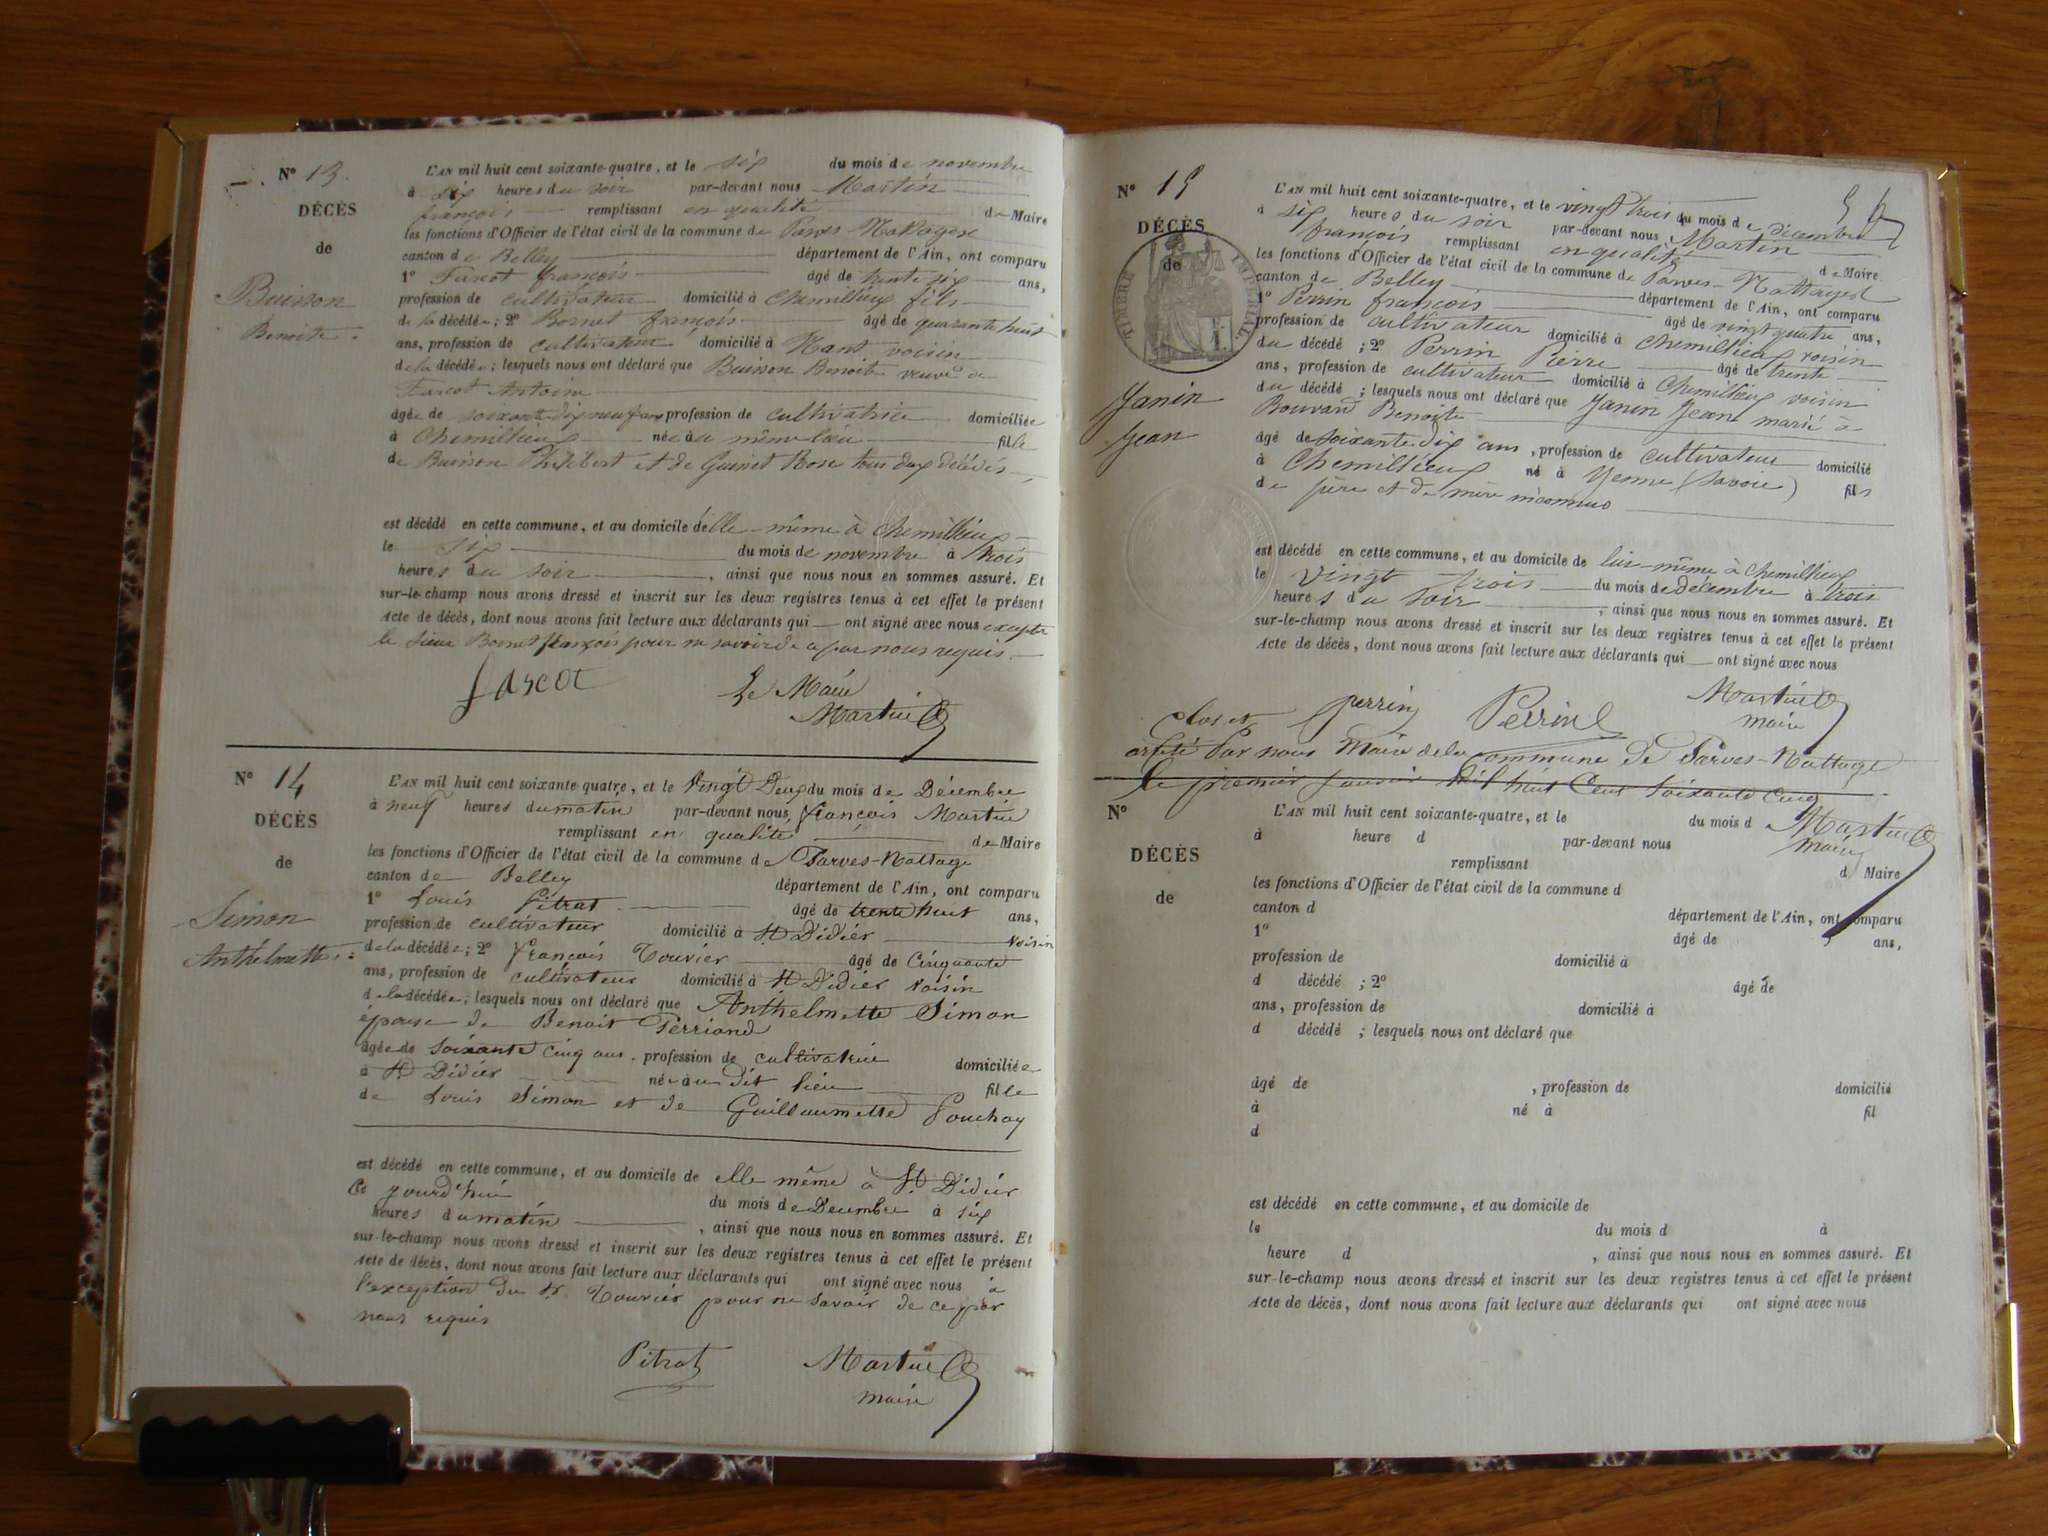 N° 13.
DÉCÈS
de
Buisson
Benoite.
L'AN mil huit cent soixante-quatre, et le six du mois de novembre
à six heures du soir par-devant nous Martin
françois remplissant en qualité de Maire
les fonctions d'Officier de l'état civil de la commune de Parves-Nattages
canton de Belley département de l'Ain, ont comparu
1° françois âgé de trente six ans,
profession de cultivateur domicilié à Chemillieux fils
de la décédée; 2° Bornet françois âgé de quarante huit
ans, profession de cultivateur domicilié à Nant voisin
de la décédée; lesquels nous ont déclaré que Buisson Benoite veuve de
Antoine
âgée de soixante dix neuf ans profession de cultivatrice domiciliée
à Chemillieux née au même lieu fille
de Buisson Philibert et de Guinet Rose tous deux décédés
est décédé en cette commune, et au domicile d'elle-même à Chemillieux
le six du mois de novembre à trois
heures du soir, ainsi que nous nous en sommes assuré. Et
sur-le-champ nous avons dressé et inscrit sur les deux registres tenus à cet effet le présent
Acte de décès, dont nous avons fait lecture aux déclarants qui ont signé avec nous excepté
le sieur Bornet françois pour ne savoir de ce par nous requis.
fascot Le Maire
Martin
N° 14
DÉCÈS
de
Simon
Anthelmette
L'AN mil huit cent soixante-quatre, et le Vingt Deux du mois de Décembre
à neuf heures du matin par-devant nous, françois Martin
remplissant en qualité de Maire
les fonctions d'Officier de l'état civil de la commune de Parves-Nattage
canton de Belley département de l'Ain, ont comparu
1° Louis Pitrat âgé de trente huit ans,
profession de cultivateur domicilié à St Didier Voisin
de la décédée; 2° françois Touvier âgé de Cinquante
ans, profession de cultivateur domicilié à St Didier Voisin
de la décédée; lesquels nous ont déclaré que Anthelmette Simon
épouse de Benoit Perriand
âgée de soixante cinq ans, profession de cultivatrice domiciliée
à St Didier née au dit lieu fille
de Louis Simon et de Guillaumette Pouchoy
est décédé en cette commune, et au domicile de elle même à St Didier
Ce jourd'hui du mois de Decembre à six
heures du matin, ainsi que nous nous en sommes assuré. Et
sur-le-champ nous avons dressé et inscrit sur les deux registres tenus à cet effet le présent
Acte de décès, dont nous avons fait lecture aux déclarants qui ont signé avec nous à
l'exception du Sr. Touvier pour ne savoir de ce par
nous requis
Pitrat Martin
maire
N° 15
DÉCÈS
de
TIMBRE IMPÉRIAL
Janin
Jean
L'AN mil huit cent soixante-quatre, et le vingt trois du mois de décembre
à six heures du soir par-devant nous Martin
françois remplissant en qualité de Maire
les fonctions d'Officier de l'état civil de la commune de Parves-Nattages
canton de Belley département de l'Ain, ont comparu
1° Perrin françois âgé de vingt quatre ans,
profession de cultivateur domicilié à Chemillieux voisin
du décédé; 2° Perrin Pierre âgé de trente
ans, profession de cultivateur domicilié à Chemillieux voisin
du décédé; lesquels nous ont déclaré que Janin Jean marié à
Bouvard Benoite
âgé de soixante dix ans, profession de cultivateur domicilié
à Chemillieux né à Yenne (Savoie) fils
de père et de mère inconnus
est décédé en cette commune, et au domicile de lui-même à Chemillieux
le vingt trois du mois de décembre à trois
heures du soir, ainsi que nous nous en sommes assuré. Et
sur-le-champ nous avons dressé et inscrit sur les deux registres tenus à cet effet le présent
Acte de décès, dont nous avons fait lecture aux déclarants qui ont signé avec nous
perrin Perrin Martin
maire
Clos et
arrêté Par nous Maire de la Commune de Parves-Nattage
le premier Janvier Mil huit Cent Soixante Cinq
Martin
maire
N°
DÉCÈS
de
L'AN mil huit cent soixante-quatre, et le du mois d
à heure d par-devant nous
remplissant d Maire
les fonctions d'Officier de l'état civil de la commune d
canton d département de l'Ain, ont comparu
1° âgé de ans,
profession de domicilié à
d décédé ; 2° âgé de
ans, profession de domicilié à
d décédé ; lesquels nous ont déclaré que
âgé de , profession de domicilié
à né à fil
d
est décédé en cette commune, et au domicile de
le du mois d à
heure d , ainsi que nous nous en sommes assuré. Et
sur-le-champ nous avons dressé et inscrit sur les deux registres tenus à cet effet le présent
Acte de décès, dont nous avons fait lecture aux déclarants qui ont signé avec nous